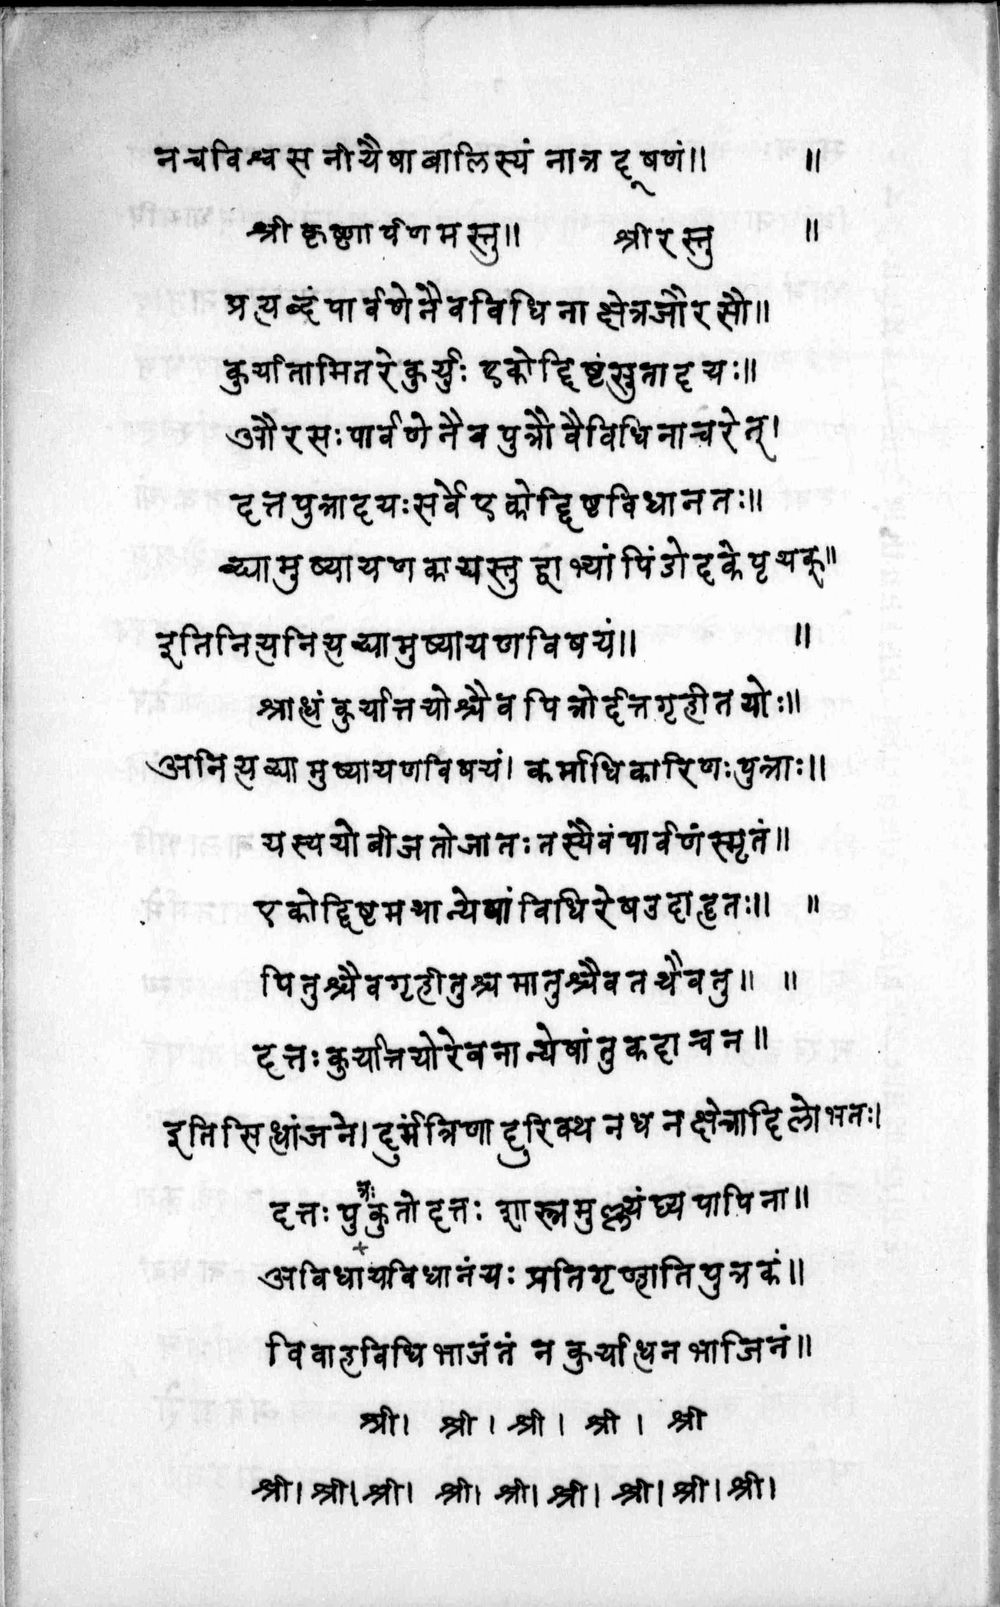 नचविश्वसनीयैषाबालिस्यं नात्रदूषणं॥ ॥
श्रीकृष्णार्पणमस्तु॥ श्रीरस्तु ॥
प्रत्यब्दंपार्वणेनैवविधिनाक्षेत्रजौरसौ॥
कुर्यातामितरेकुर्युः एकोद्दिष्टंसुतादयः॥
औरसःपार्वणेनैवपुत्रोवैविधिनाचरेत्।
दत्तपुत्रादयःसर्वेएकोद्दिष्टविधानतः॥
द्व्यामुष्यायणकायस्तुद्वाभ्यांपिंडोदकेपृथक्॥
इतिनित्यनित्यद्व्यामुष्यायणविषयं॥ ॥
श्राद्धंकुर्यात्तयोश्चैवपित्रोर्दत्तगृहीतयोः॥
अनित्यद्व्यामुष्यायणविषयं। कर्माधिकारिणःपुत्राः॥
यस्ययोबीजतोजातःतस्यैवंपार्वणंस्मृतं॥
एकोद्दिष्टमथान्येषांविधिरेषउदाहृतः॥ ॥
पितुश्चैवगृहीतुश्चमातुश्चैवतथैवतु॥ ॥
दत्तःकुर्यात्तयोरेवनान्येषांतुकदाचन॥
इतिसिध्धांजने। दुर्मंत्रिणादुरिक्थनधनक्षेत्रादिलोभतः।
दत्तःपुत्रःकुतोदत्तः शास्त्रमुल्लंघ्यपापिना॥
अविधायविधानंयः प्रतिगृण्हातिपुत्रकं॥
विवाहविधिभाजंतं नकुर्याध्धनभाजिनं॥
श्री। श्री। श्री। श्री। श्री
श्री।श्री।श्री। श्री।श्री।श्री।श्री।श्री।श्री।